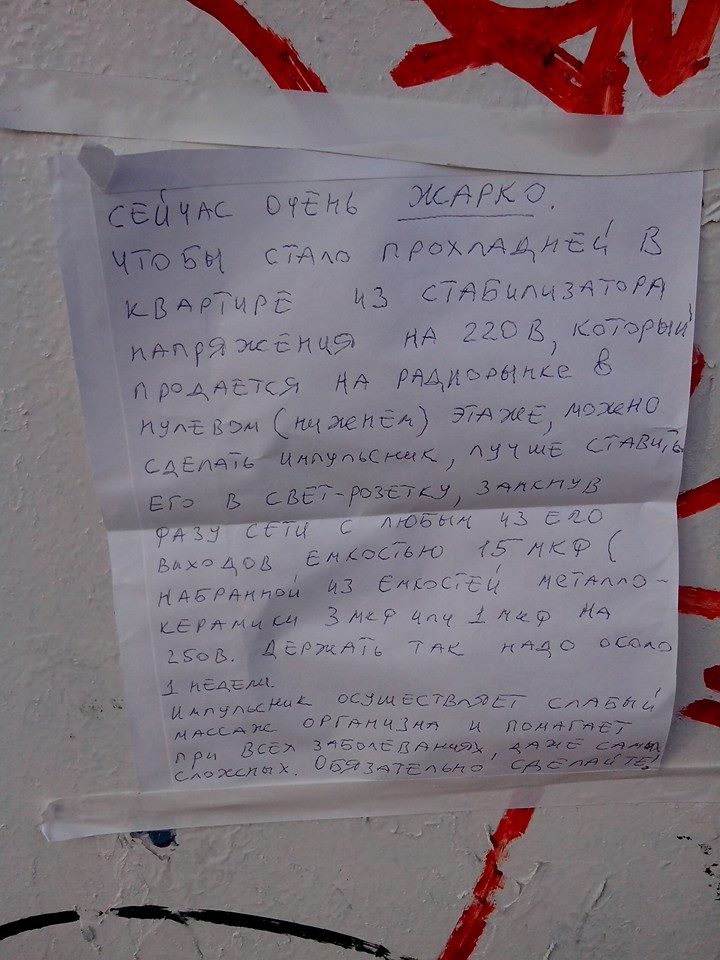 СЕЙЧАС ОЧЕНЬ ЖАРКО.
ЧТОБЫ СТАЛО ПРОХЛАДНЕЙ В
КВАРТИРЕ ИЗ СТАБИЛИЗАТОРА
НАПРЯЖЕНИЯ НА 220В, КОТОРЫЙ
ПРОДАЕТСЯ НА РАДИОРЫНКЕ В
НУЛЕВОМ (НИЖНЕМ) ЭТАЖЕ, МОЖНО
СДЕЛАТЬ ИМПУЛЬСНИК, ЛУЧШЕ СТАВИТЬ
ЕГО В СВЕТ-РОЗЕТКУ, ЗАМКНУВ
ФАЗУ СЕТИ С ЛЮБЫМ ИЗ ЕГО
ВЫХОДОВ ЕМКОСТЬЮ 15 МКФ (
НАБРАННОЙ ИЗ ЕМКОСТЕЙ МЕТАЛЛО-
КЕРАМИКИ 3 МКФ ИЛИ 1 МКФ НА
250В. ДЕРЖАТЬ ТАК НАДО ОКОЛО
1 НЕДЕЛИ.
ИМПУЛЬСНИК ОСУЩЕСТВЛЯЕТ СЛАБЫЙ
МАССАЖ ОРГАНИЗМА И ПОМАГАЕТ
ПРИ ВСЕХ ЗАБОЛЕВАНИЯХ, ДАЖЕ САМЫХ
СЛОЖНЫХ. ОБЯЗАТЕЛЬНО СДЕЛАЙТЕ!